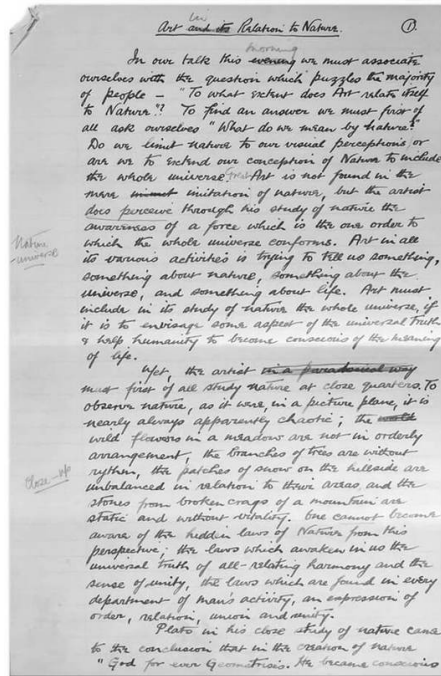 in
Art and its Relation to Nature. 1.
morning
In our talk this evening we must associate
ourselves with the question which puzzles the majority
of people – "To what extent does Art relate itself
to Nature"? To find an answer we must first of
all ask ourselves "What do we mean by nature?"
Do we limit nature to our visual perceptions, or
are we to extend our conception of Nature to include
the whole universe. Art is not found in the
mere imitation of nature, but the artist
does perceive through his study of nature the
awareness of a force which is the one order to
which the whole universe conforms. Art in all
Nature
- universe
its various activities is trying to tell us something,
something about nature, something about the
universe, and something about life. Art must
include in its study of nature the whole universe, if
it is to envisage some aspect of the universal truth
& help humanity to become conscious of the meaning
of life.
Yet, the artist in a paradoxical way
must first of all study nature at close quarters. To
observe nature, as it were, in a picture plane, it is
nearly always apparently chaotic; the
wild flowers in a meadow are not in orderly
arrangement, the branches of trees are without
rythm, the patches of snow on the hillside are
Close-up
unbalanced in relation to their areas, and the
stones from broken crags of a mountain are
static and without vitality. One cannot become
aware of the hidden laws of Nature from this
perspective; the laws which awaken in us the
universal truth of all-relating harmony and the
sense of unity, the laws which are found in every
department of man's activity, an expression of
order, relation, union and unity.
Plato in his close study of nature came
to the conclusion that in the creation of nature
"God for ever Geometrises. He became conscious